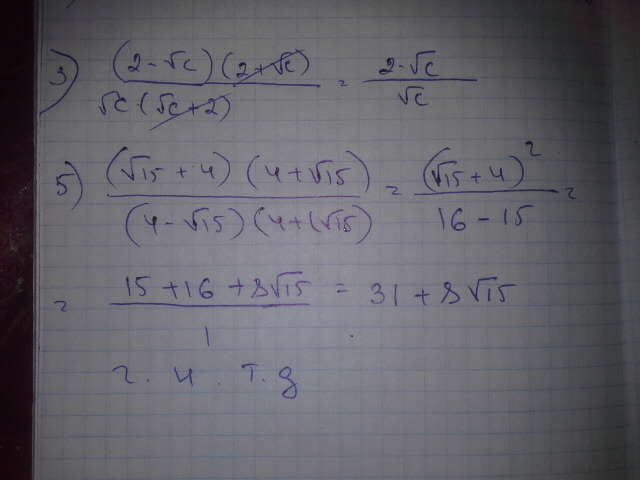 3) (2-√c)(2+√c) / √c(√c+2) = 2-√c / √c
5) (√15+4)(4+√15) / (4-√15)(4+√15) = (√15+4)² / 16-15 =
= 15+16+8√15 / 1 = 31+8√15
2. ч. т. д